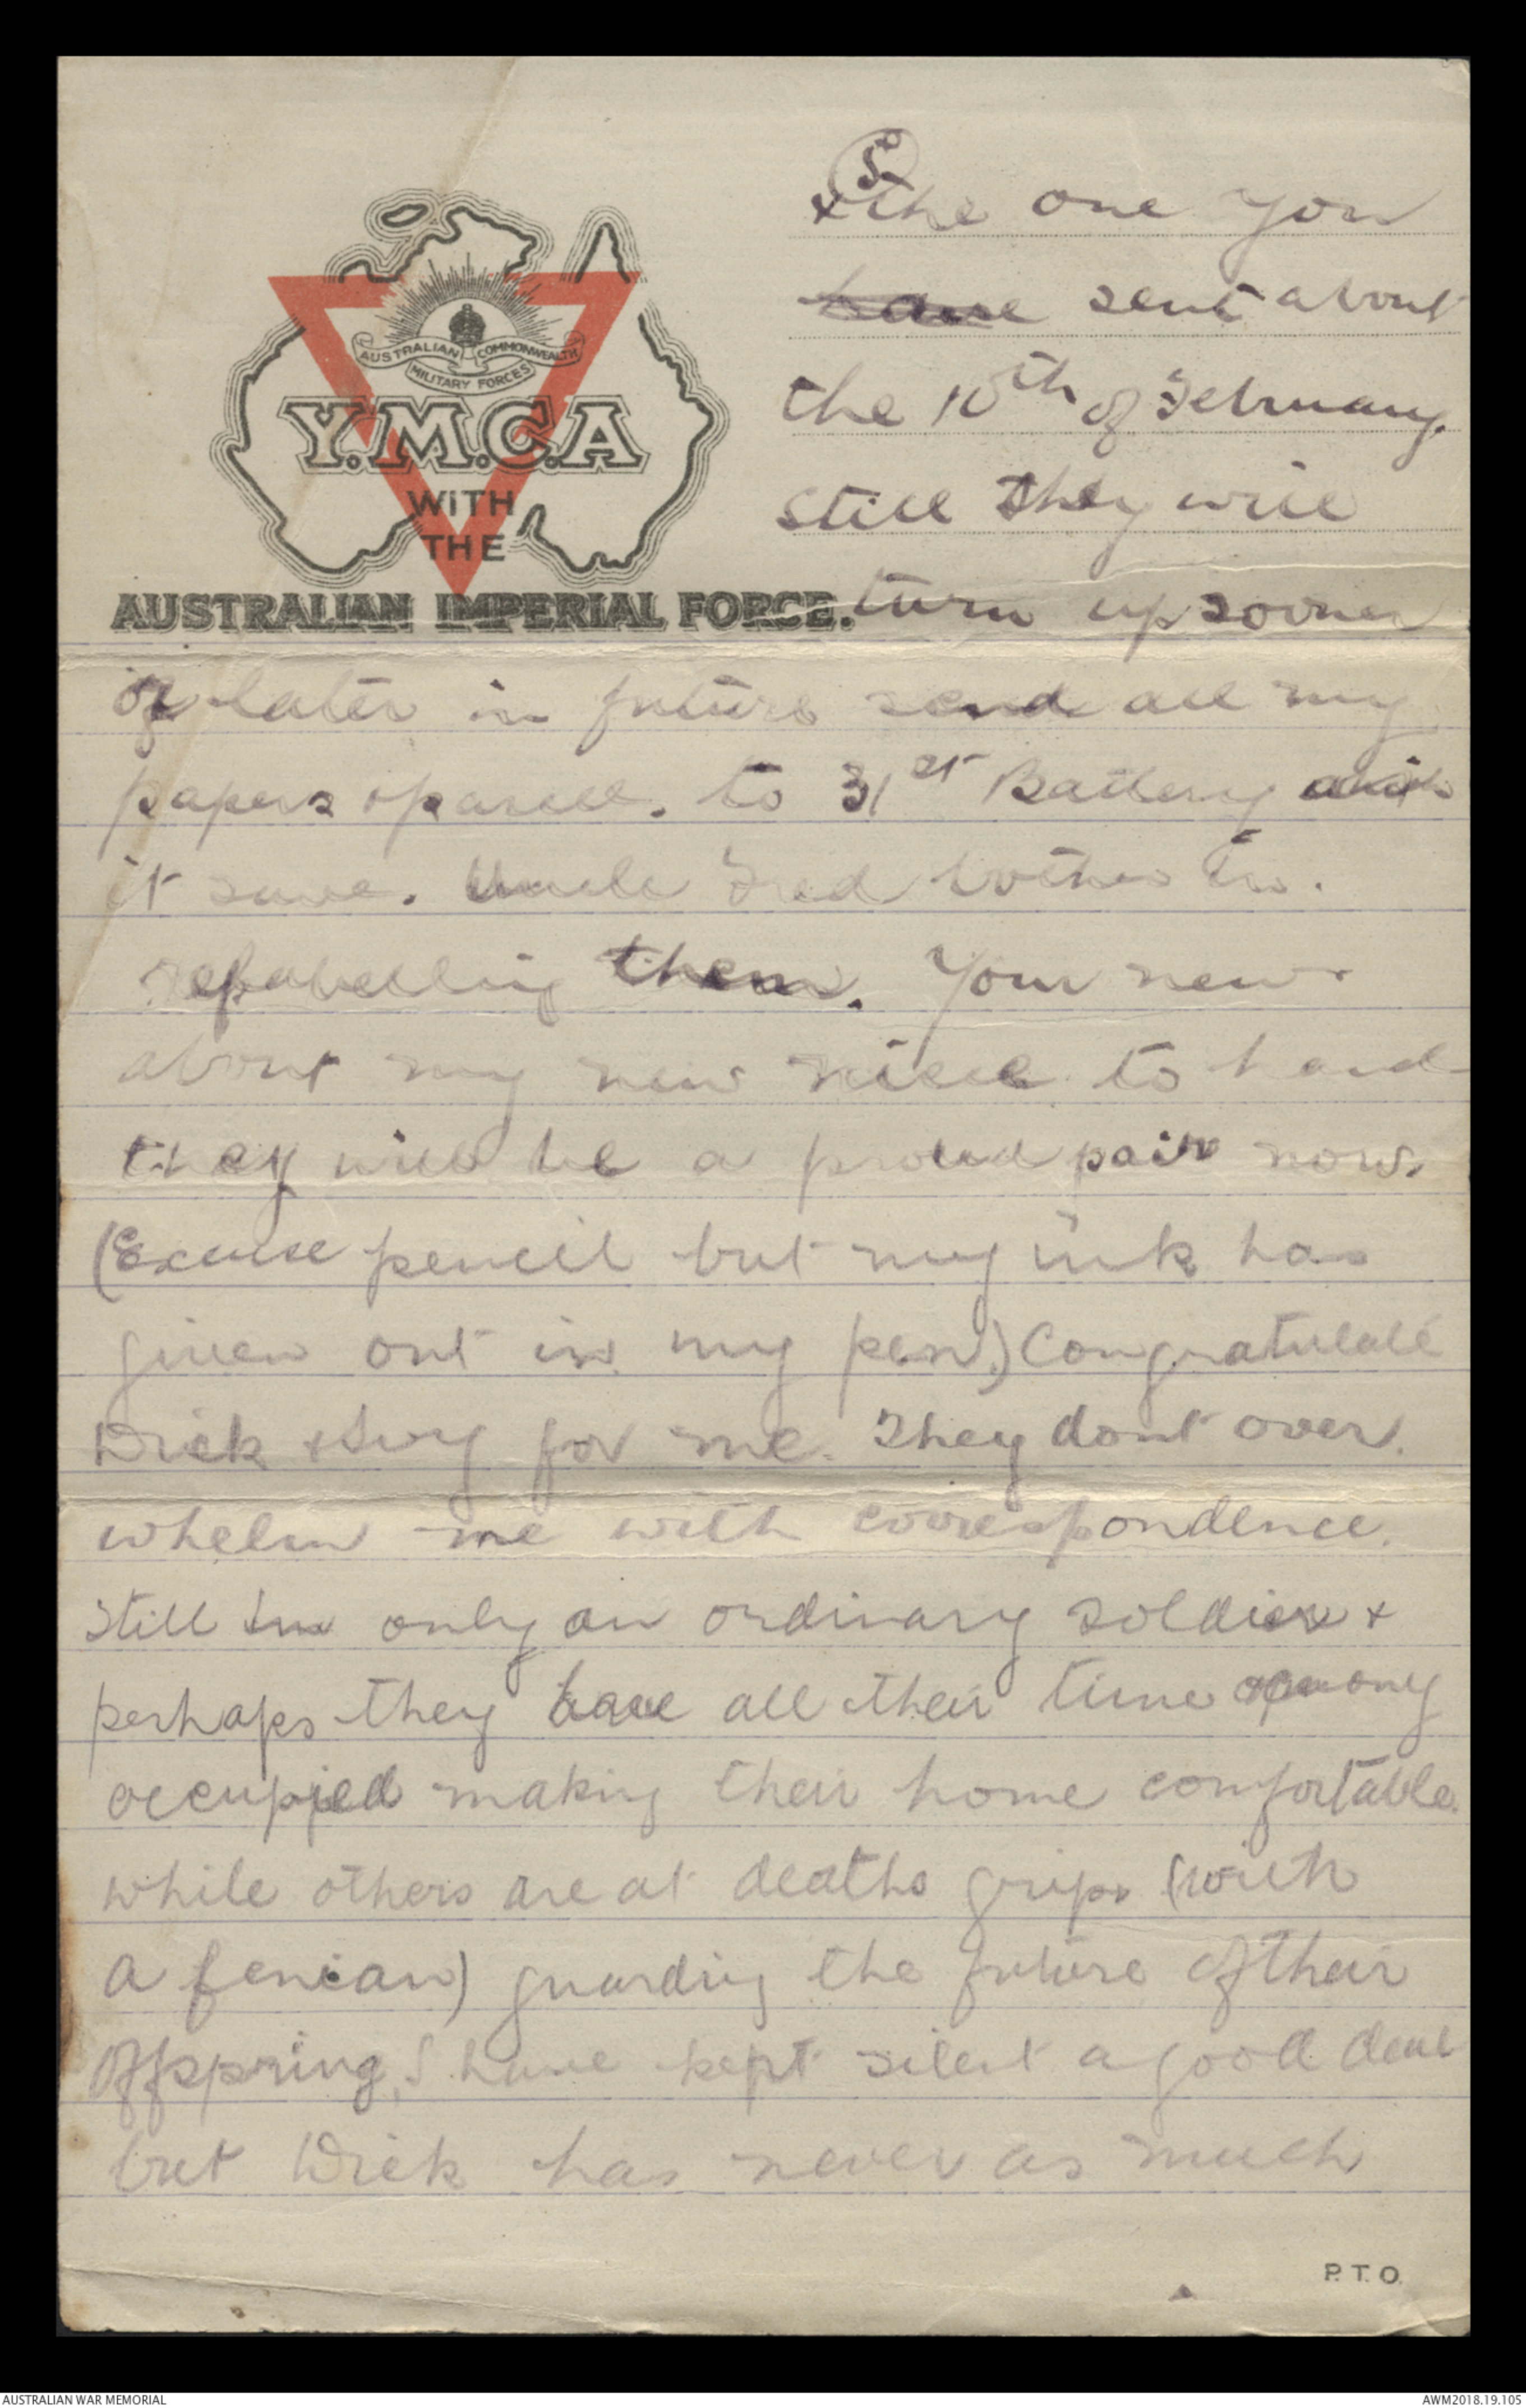 5
& the one you
have sent about
the 10th of February.
Still they will
AUSTRALIAN
COMMONWEALTH
MILITARY FORCES
Y.M.C.A
WITH
THE
AUSTRALIAN IMPERIAL FORCE.
turn up sooner
or later in future send all my
papers & parcels. to 31st Battery
it saves. Uncle Fred bother in.
relabelling them. Your news
about my new niece to hand
they will be a proud pair now.
(Excuse pencil but my ink has
given out in my pen.) Congratulate
Dick & Ivy for me. They dont over.
whelm me with correspondence.
Still Im only an ordinary soldier &
perhaps they have all their time
occupied making their home comfortable.
while others are at deaths grips (with
a fenian) guarding the future of their
offspring, I have kept silent a good deal
but Dick has never as much
P.T.O.
AUSTRALIAN WAR MEMORIAL
AWM2018.19.105